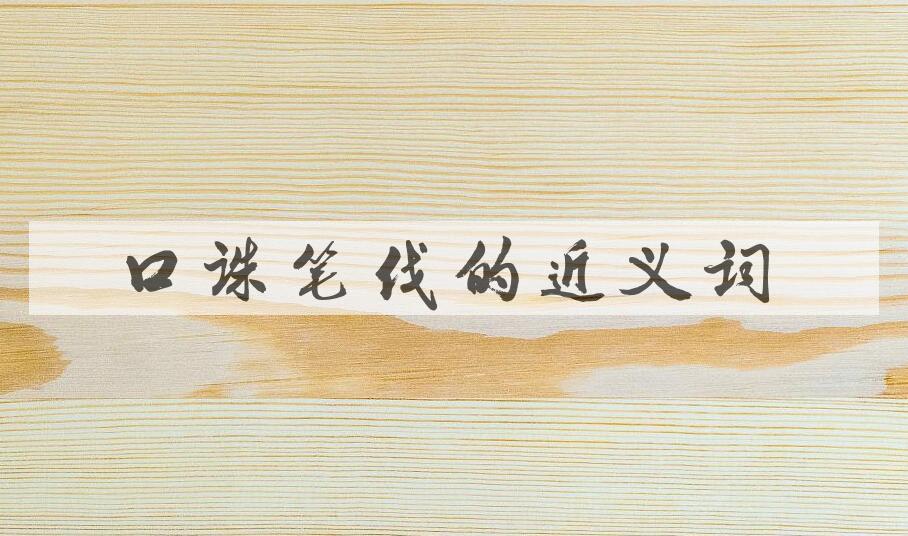 口诛笔伐的近义词